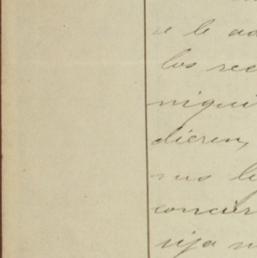 se le ad
los rec
niqui
dieren,
nus le
concur
rija n